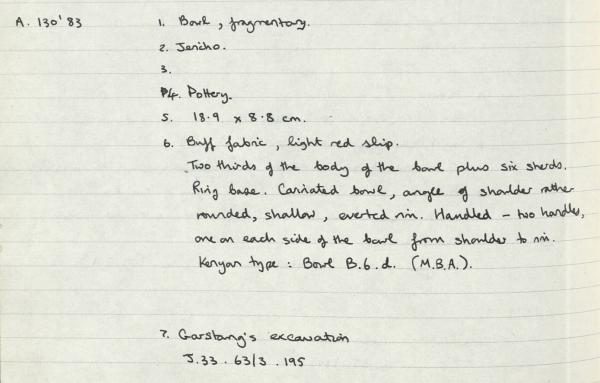 A. 130'83 1. Bowl, fragmentary.
2. Jericho.
3.
4. Pottery.
5. 18.9 x 8.8 cm.
6. Buff fabric, light red slip.
Two thirds of the body of the bowl plus six sherds.
Ring base. Carinated bowl, angle of shoulder rather
rounded, shallow, everted rim. Handled – two handles,
one on each side of the bowl from shoulder to rim.
Kenyon type : Bowl B.6.d. (M.B.A.).
7. Garstang's excavation
J.33 . 63/3 . 195